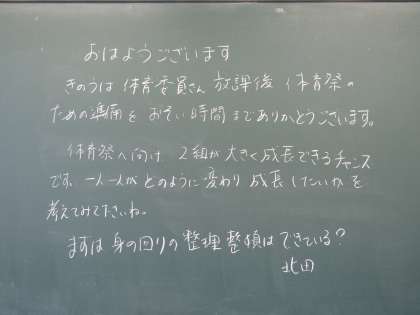 おはようございます
きのうは 体育委員さん 放課後 体育祭の
ための準備を おそい時間までありがとうございます。
体育祭へ向け 2組が大きく成長できるチャンス
です。一人一人が どのように変わり 成長したいかを
考えてみてたいね。
まずは 身の回りの整理整頓は できている？
北田